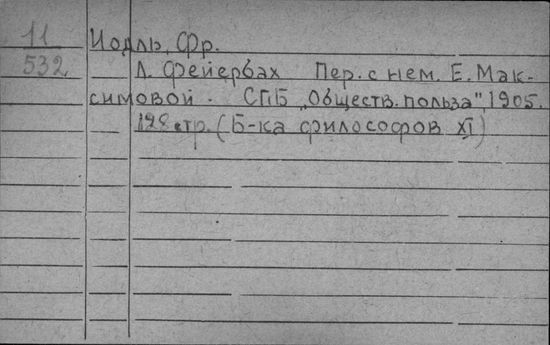 11
532
Иодль, Фр.
Л. Фейербах Пер. с нем. Е. Мак-
симовой. СПБ „Обществ. польза", 1905.
128 стр. (Б-ка философов XI)